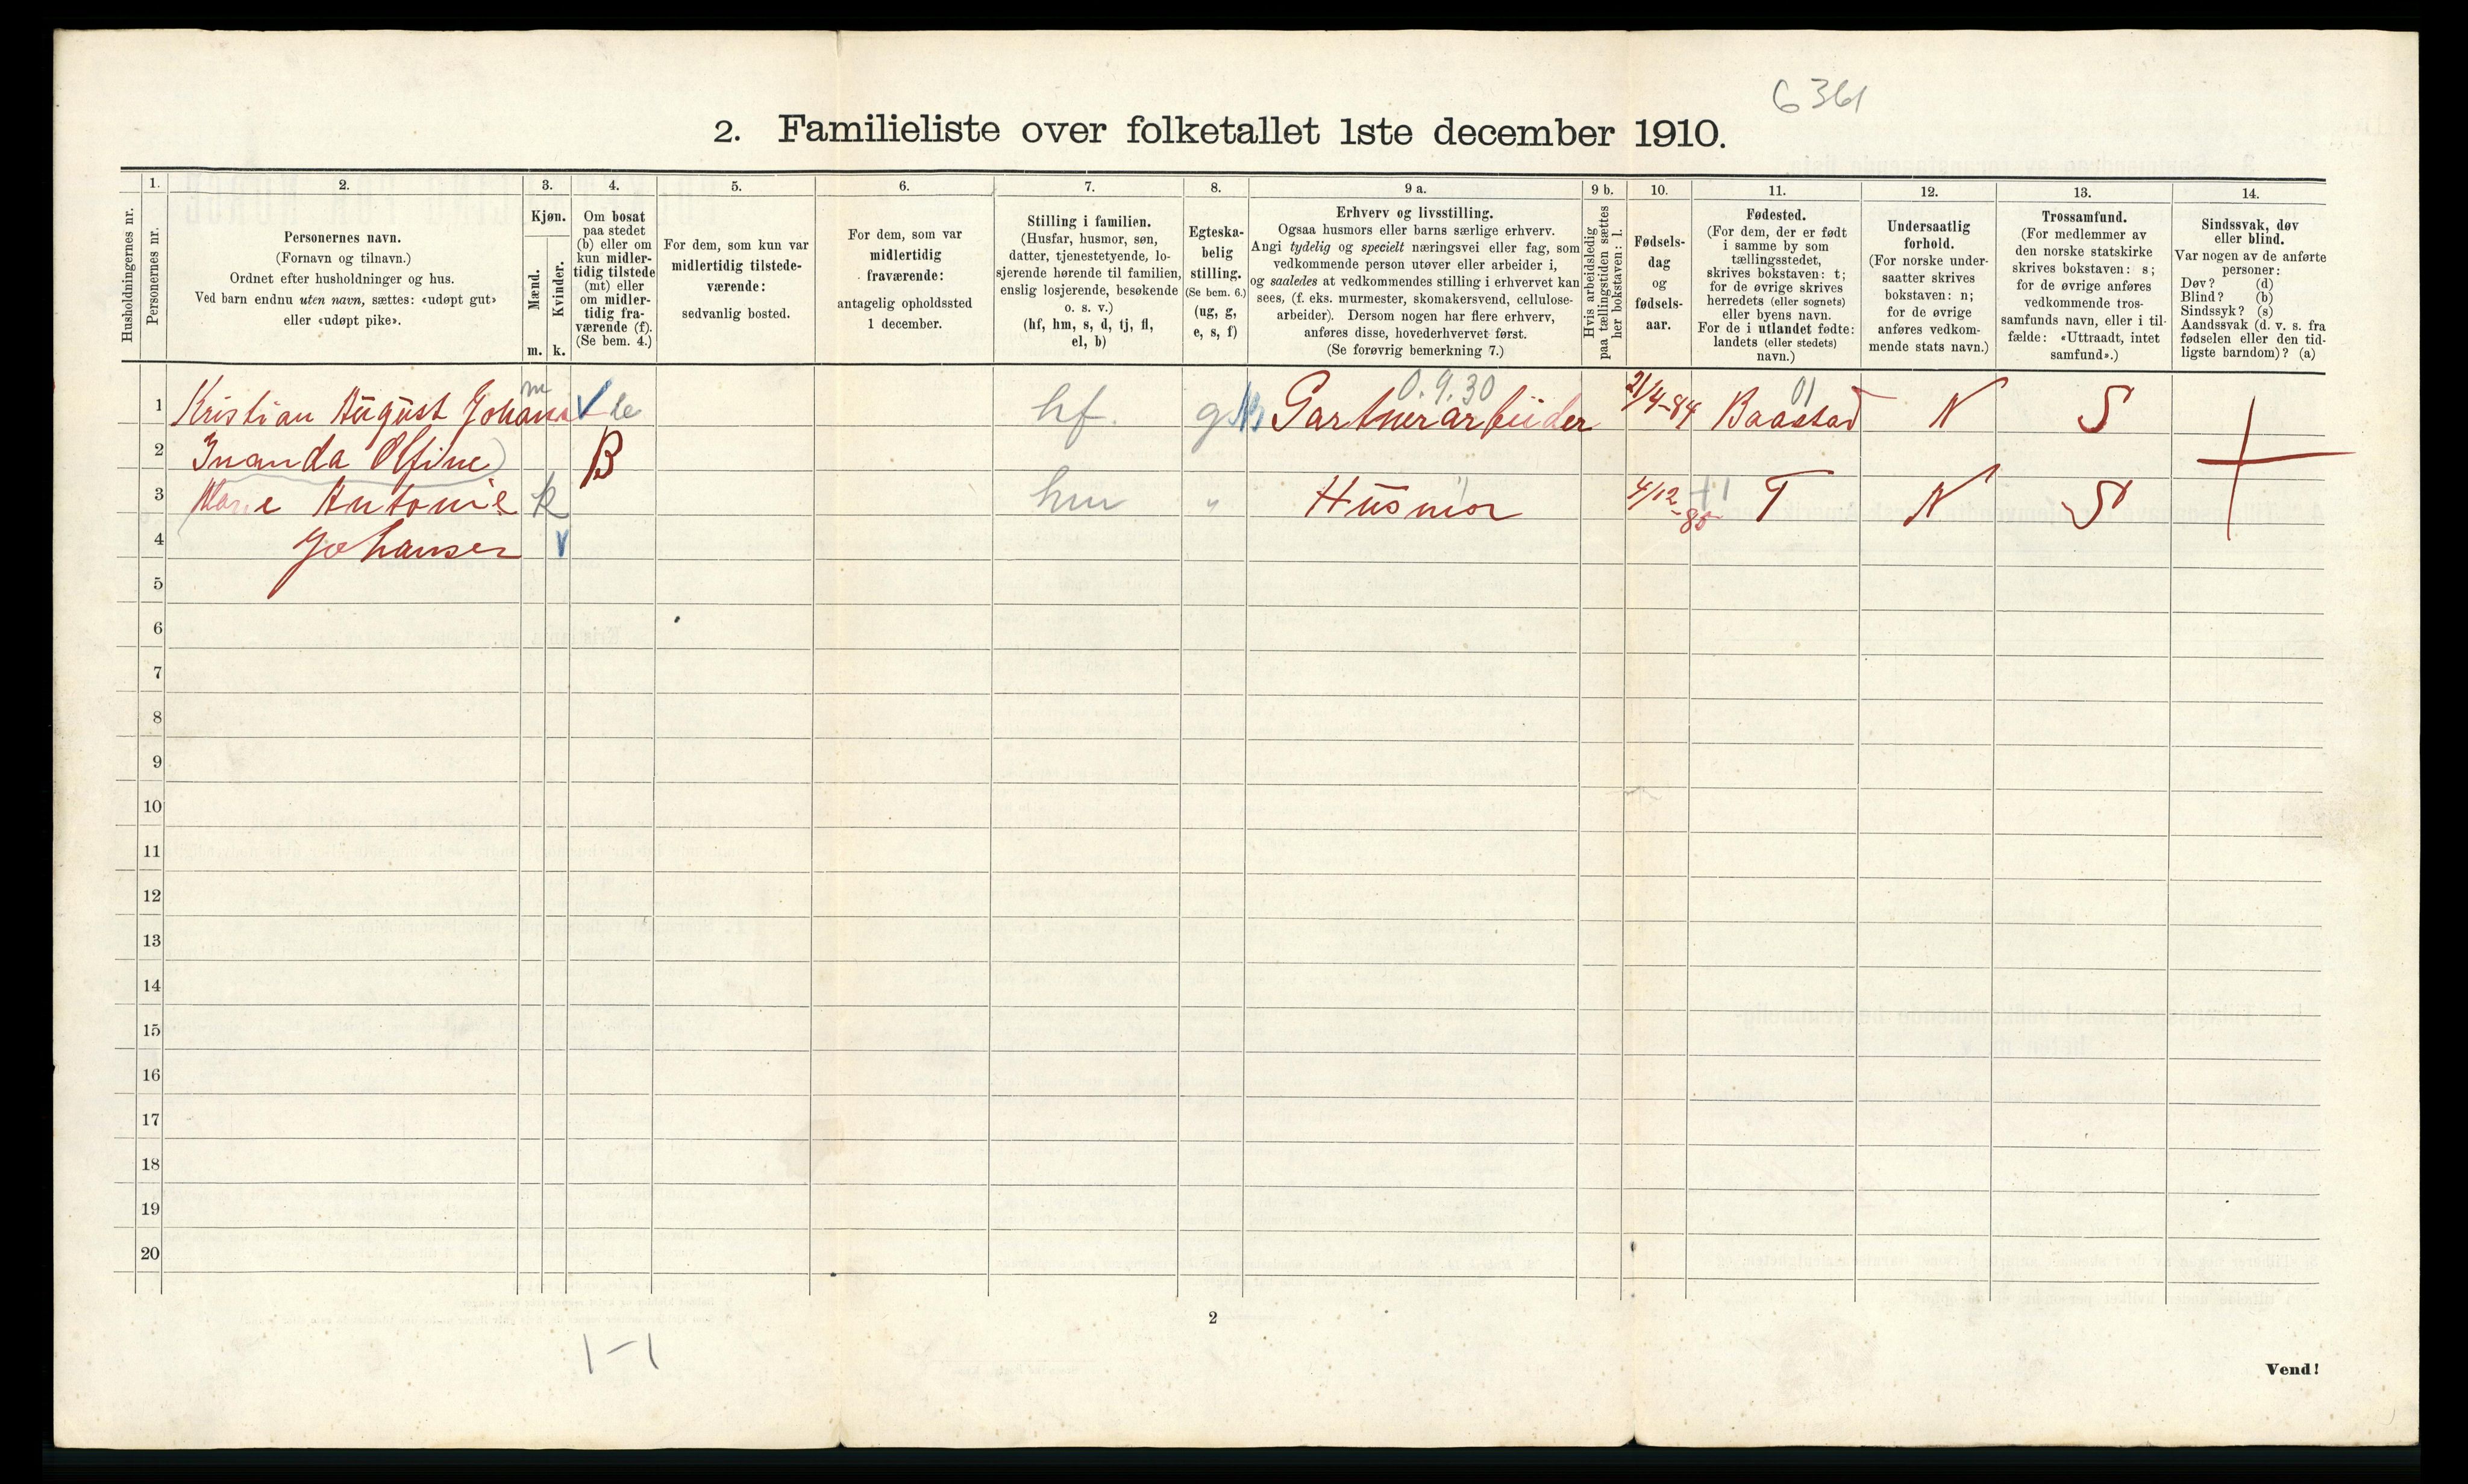 6361
2. Familieliste over folketallet 1ste december 1910.
Husholdningernes nr.
1.
Personernes nr.
2.
Personernes navn.
(Fornavn og tilnavn.)
Ordnet efter husholdninger og hus.
Ved barn endnu uten navn, sættes: «udøpt gut»
eller «udøpt pike».
3.
Kjøn.
Mænd.
Kvinder.
m. k.
4.
Om bosat
paa stedet
(b) eller om
kun midler-
tidig tilstede
(mt) eller
om midler-
tidig fra-
værende (f).
(Se bem. 4.)
5.
For dem, som kun var
midlertidig tilstede-
værende:
sedvanlig bosted.
6.
For dem, som var
midlertidig
fraværende:
antagelig opholdssted
1 december.
7.
Stilling i familien.
(Husfar, husmor, søn,
datter, tjenestetyende, lo-
sjerende hørende til familien,
enslig losjerende, besøkende
o. s. v.)
(hf, hm, s, d, tj, fl,
el, b)
8.
Egteska-
belig
stilling.
(Se bem. 6.)
(ug, g,
e, s, f)
9 a.
Erhverv og livsstilling.
Ogsaa husmors eller barns særlige erhverv.
Angi tydelig og specielt næringsvei eller fag, som
vedkommende person utøver eller arbeider i,
og saaledes at vedkommendes stilling i erhvervet kan
sees, (f. eks. murmester, skomakersvend, cellulose-
arbeider). Dersom nogen har flere erhverv,
anføres disse, hovederhvervet først.
(Se forøvrig bemerkning 7.)
9 b.
Hvis arbeidsledig
paa tællingstiden sættes
her bokstaven: l.
10.
Fødsels-
dag
og
fødsels-
aar.
11.
Fødested.
(For dem, der er født
i samme by som
tællingsstedet,
skrives bokstaven: t;
for de øvrige skrives
herredets (eller sognets)
eller byens navn.
For de i utlandet fødte:
landets (eller stedets)
navn.)
12.
Undersaatlig
forhold.
(For norske under-
saatter skrives
bokstaven: n;
for de øvrige
anføres vedkom-
mende stats navn.)
13.
Trossamfund.
(For medlemmer av
den norske statskirke
skrives bokstaven: s;
for de øvrige anføres
vedkommende tros-
samfunds navn, eller i til-
fælde: «Uttraadt, intet
samfund».)
14.
Sindssvak, døv
eller blind.
Var nogen av de anførte
personer:
Døv? (d)
Blind? (b)
Sindssyk? (s)
Aandssvak (d. v. s. fra
fødselen eller den tid-
ligste barndom)? (a)
1 Kristian August Johans m hf. g Gartnerarbeider 0.9.30 21/4-84 Baastad 01 N S
2 Inanda Olfine B
3 Marie Antonie k hm " Husmor " 4/12 -85 T N S
4 Johansen
5
6
7
8
9
10
11
12
13
14
15
16
17
18
19
20
2
1-1
Vend!